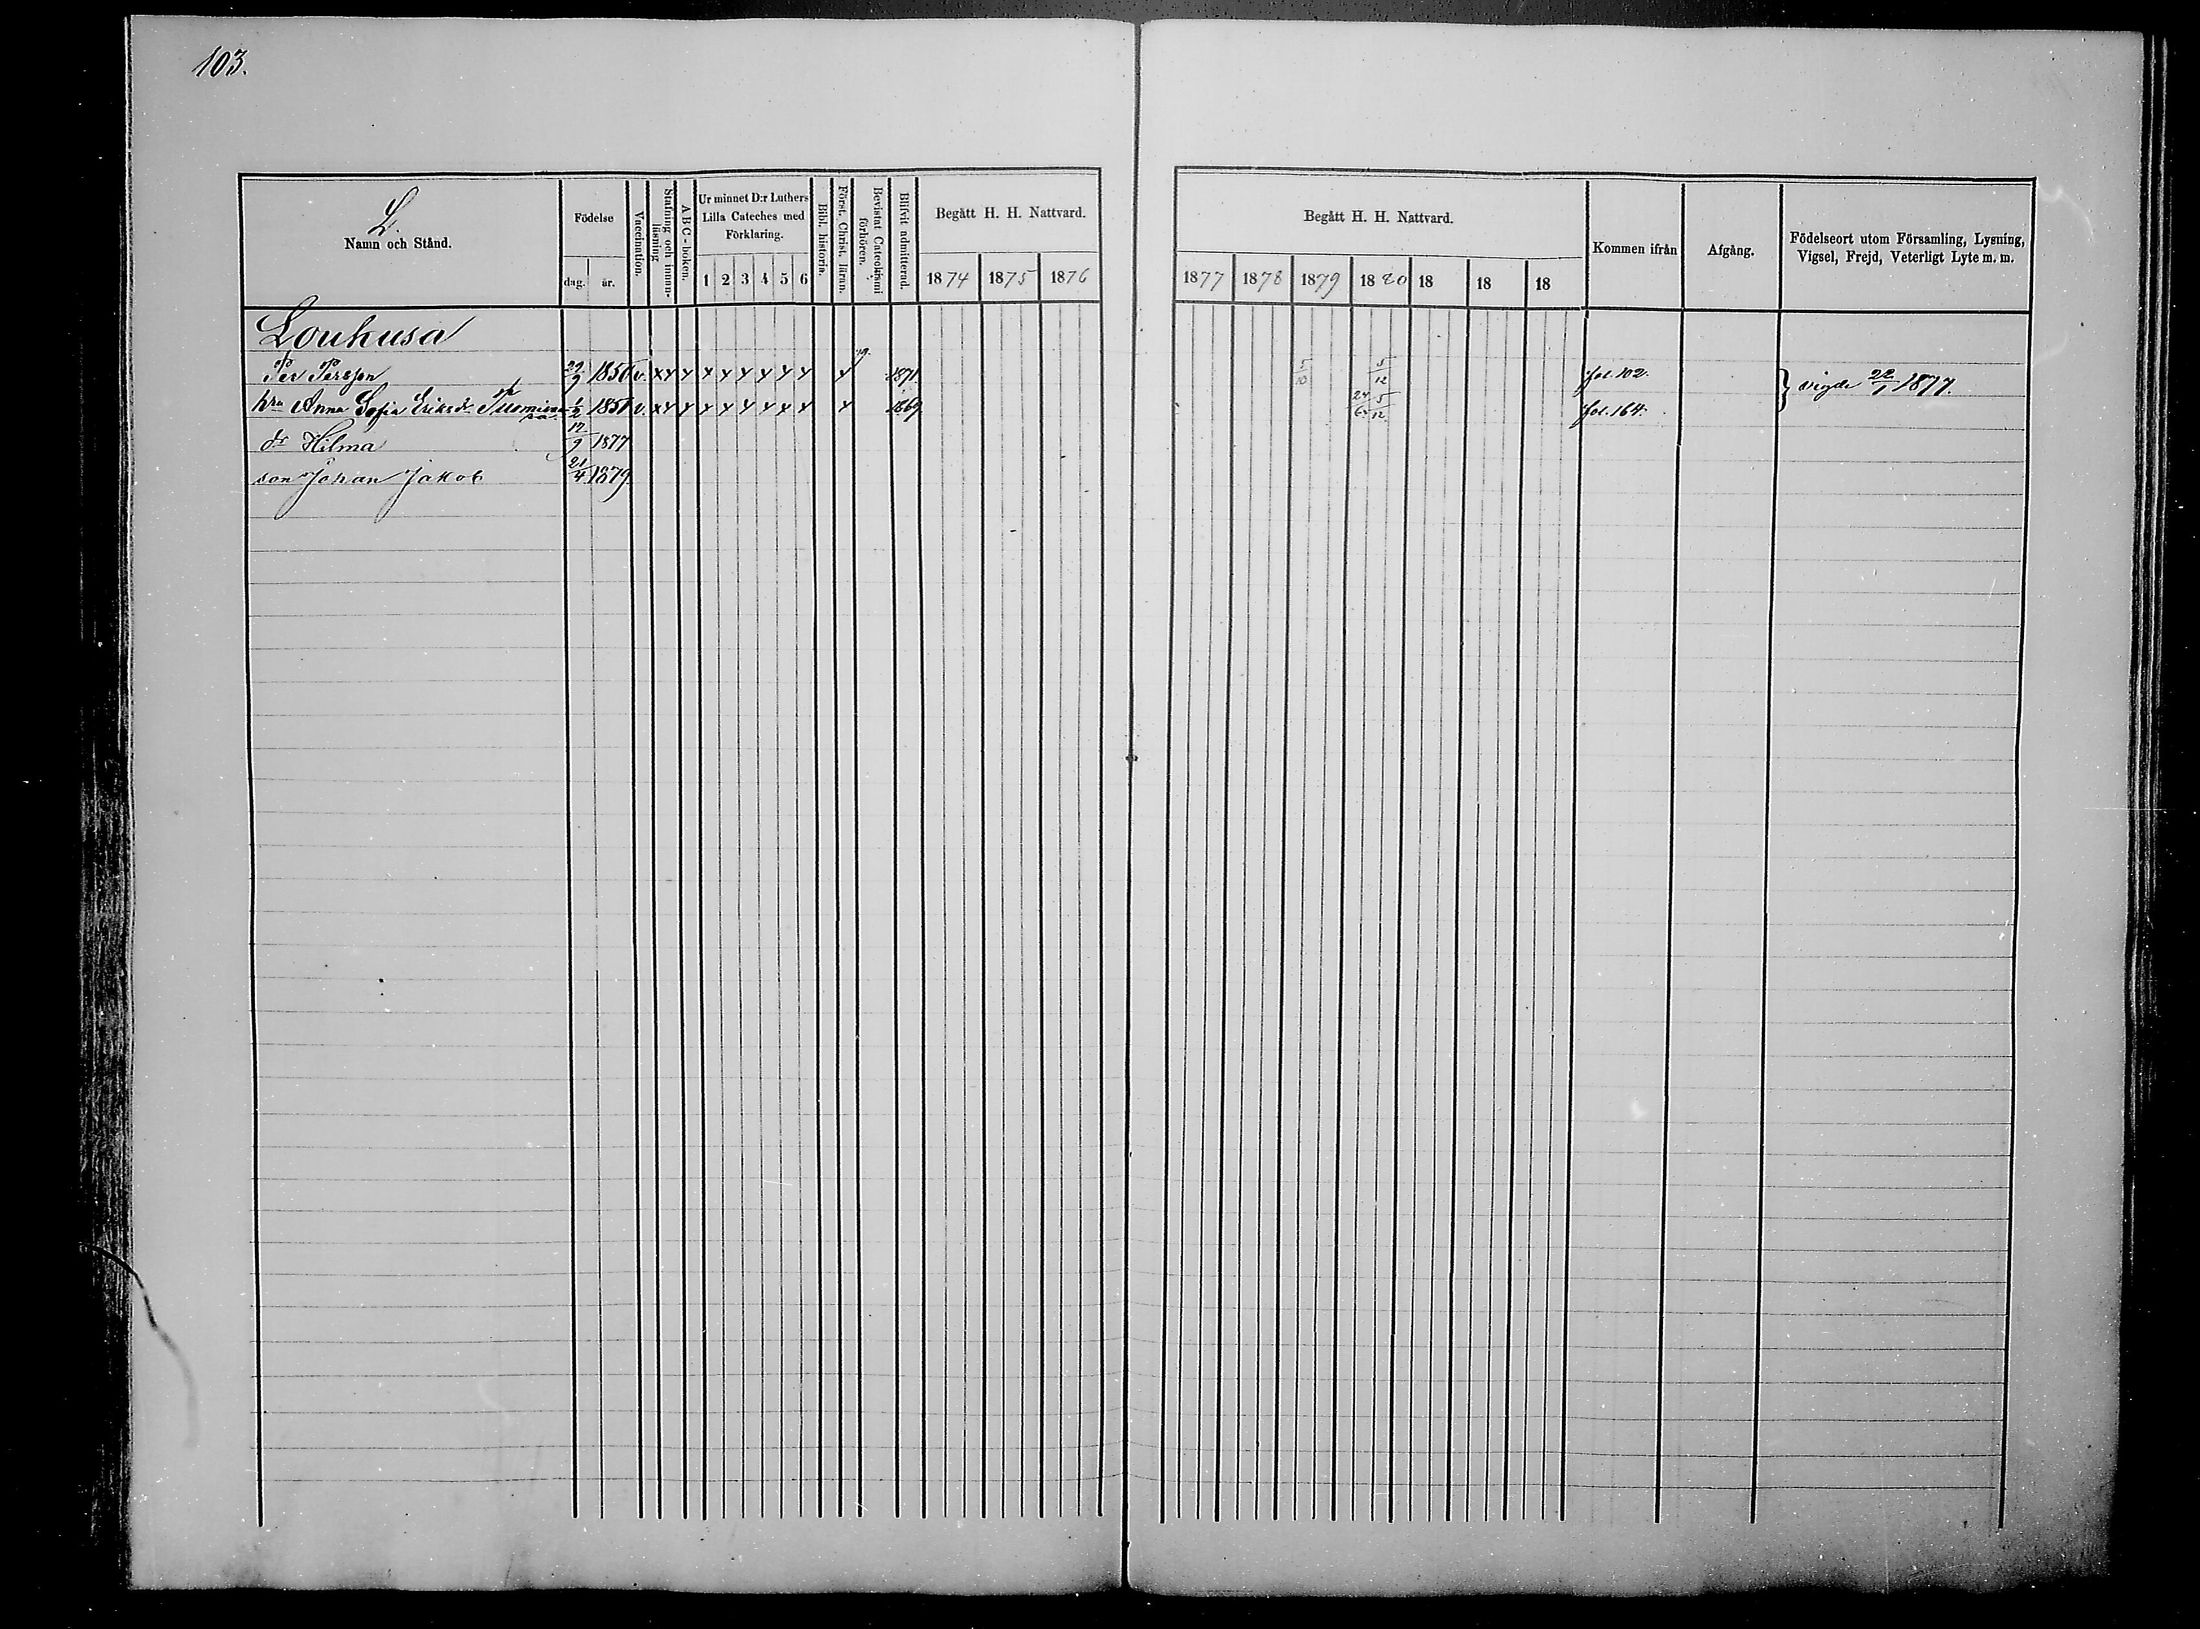 103.
L.
Namn och Stånd.
Födelse
dag.
år.
Vaccination.
Stafning och innan-
läsning
A B C-boken.
Ur minnet D:r Luthers
Lilla Cateches med
Förklaring.
1 2 3 4 5 6
Bibl. historia.
Först. Christ. läran.
Bevistat Catechismi
förhören.
Blifvit admitterad.
Begått H. H. Nattvard.
1874 1875 1876
Begått H. H. Nattvard.
1877 1878 1879 1880 18 18 18
Kommen ifrån
Afgång.
Födelseort utom Församling, Lysning,
Vigsel, Frejd, Veterligt Lyte m. m.
Louhusa
Per Persson 29/9 1850 v. x x x x x x x x x x 1871. 5/10 5/12 fol. 102. } vigde 22/1 1877.
hru Anna Sofia Eriksdr 1/2 1851 v. x x x x x x x x x x 1869 24/6 5/12 fol. 164.
dr Hilma 12/9 1877
son Johan Jakob 21/4 1879